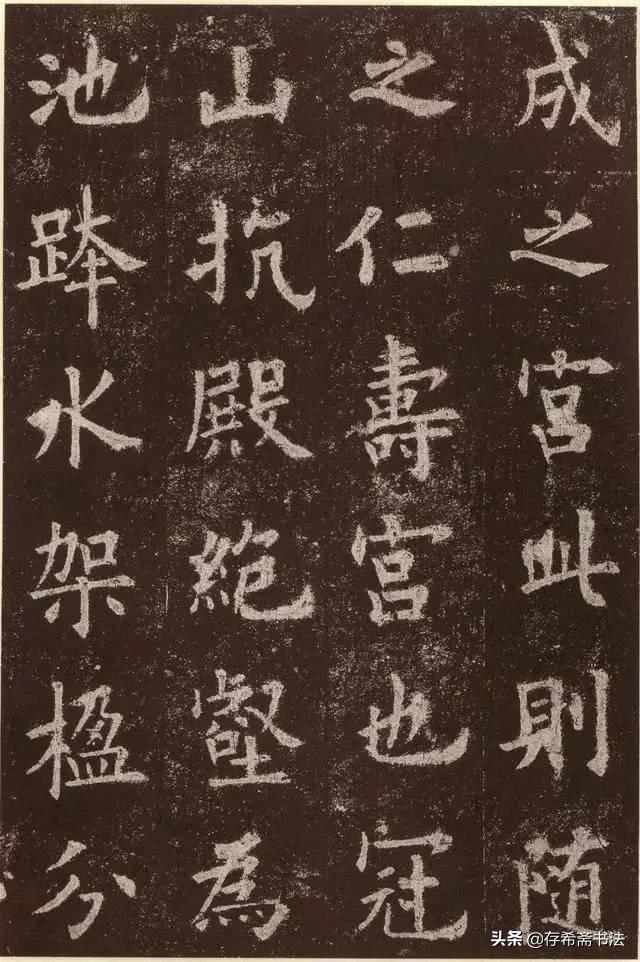 成之宮此則随
之仁壽宮也冠
山抗殿絶壑為
池跨水架楹分
头条 @存希斋书法